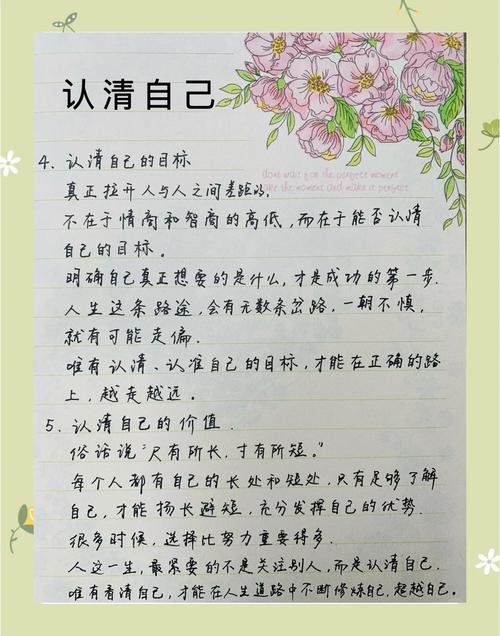 认清自己
4. 认清自己的目标
dont wait for the perfect moment
take the moment and make it perfect
真正拉开人与人之间差距的,
不在于情商和智商的高低,而在于能否认清
自己的目标。
明确自己真正想要的是什么,才是成功的第一步.
人生这条路途,会有无数条岔路,一朝不慎,
就有可能走偏.
唯有认清、认准自己的目标,才能在正确的路
上,越走越远.
5. 认清自己的价值.
俗话说"尺有所长,寸有所短。"
每个人都有自己的长处和短处,只有足够了解
自己,才能扬长避短,充分发挥自己的优势.
很多时候,选择比努力重要得多.
人这一生,最紧要的不是关注别人,而是认清自己.
唯有看清自己,才能在人生道路中不断修炼自己,超越自己。